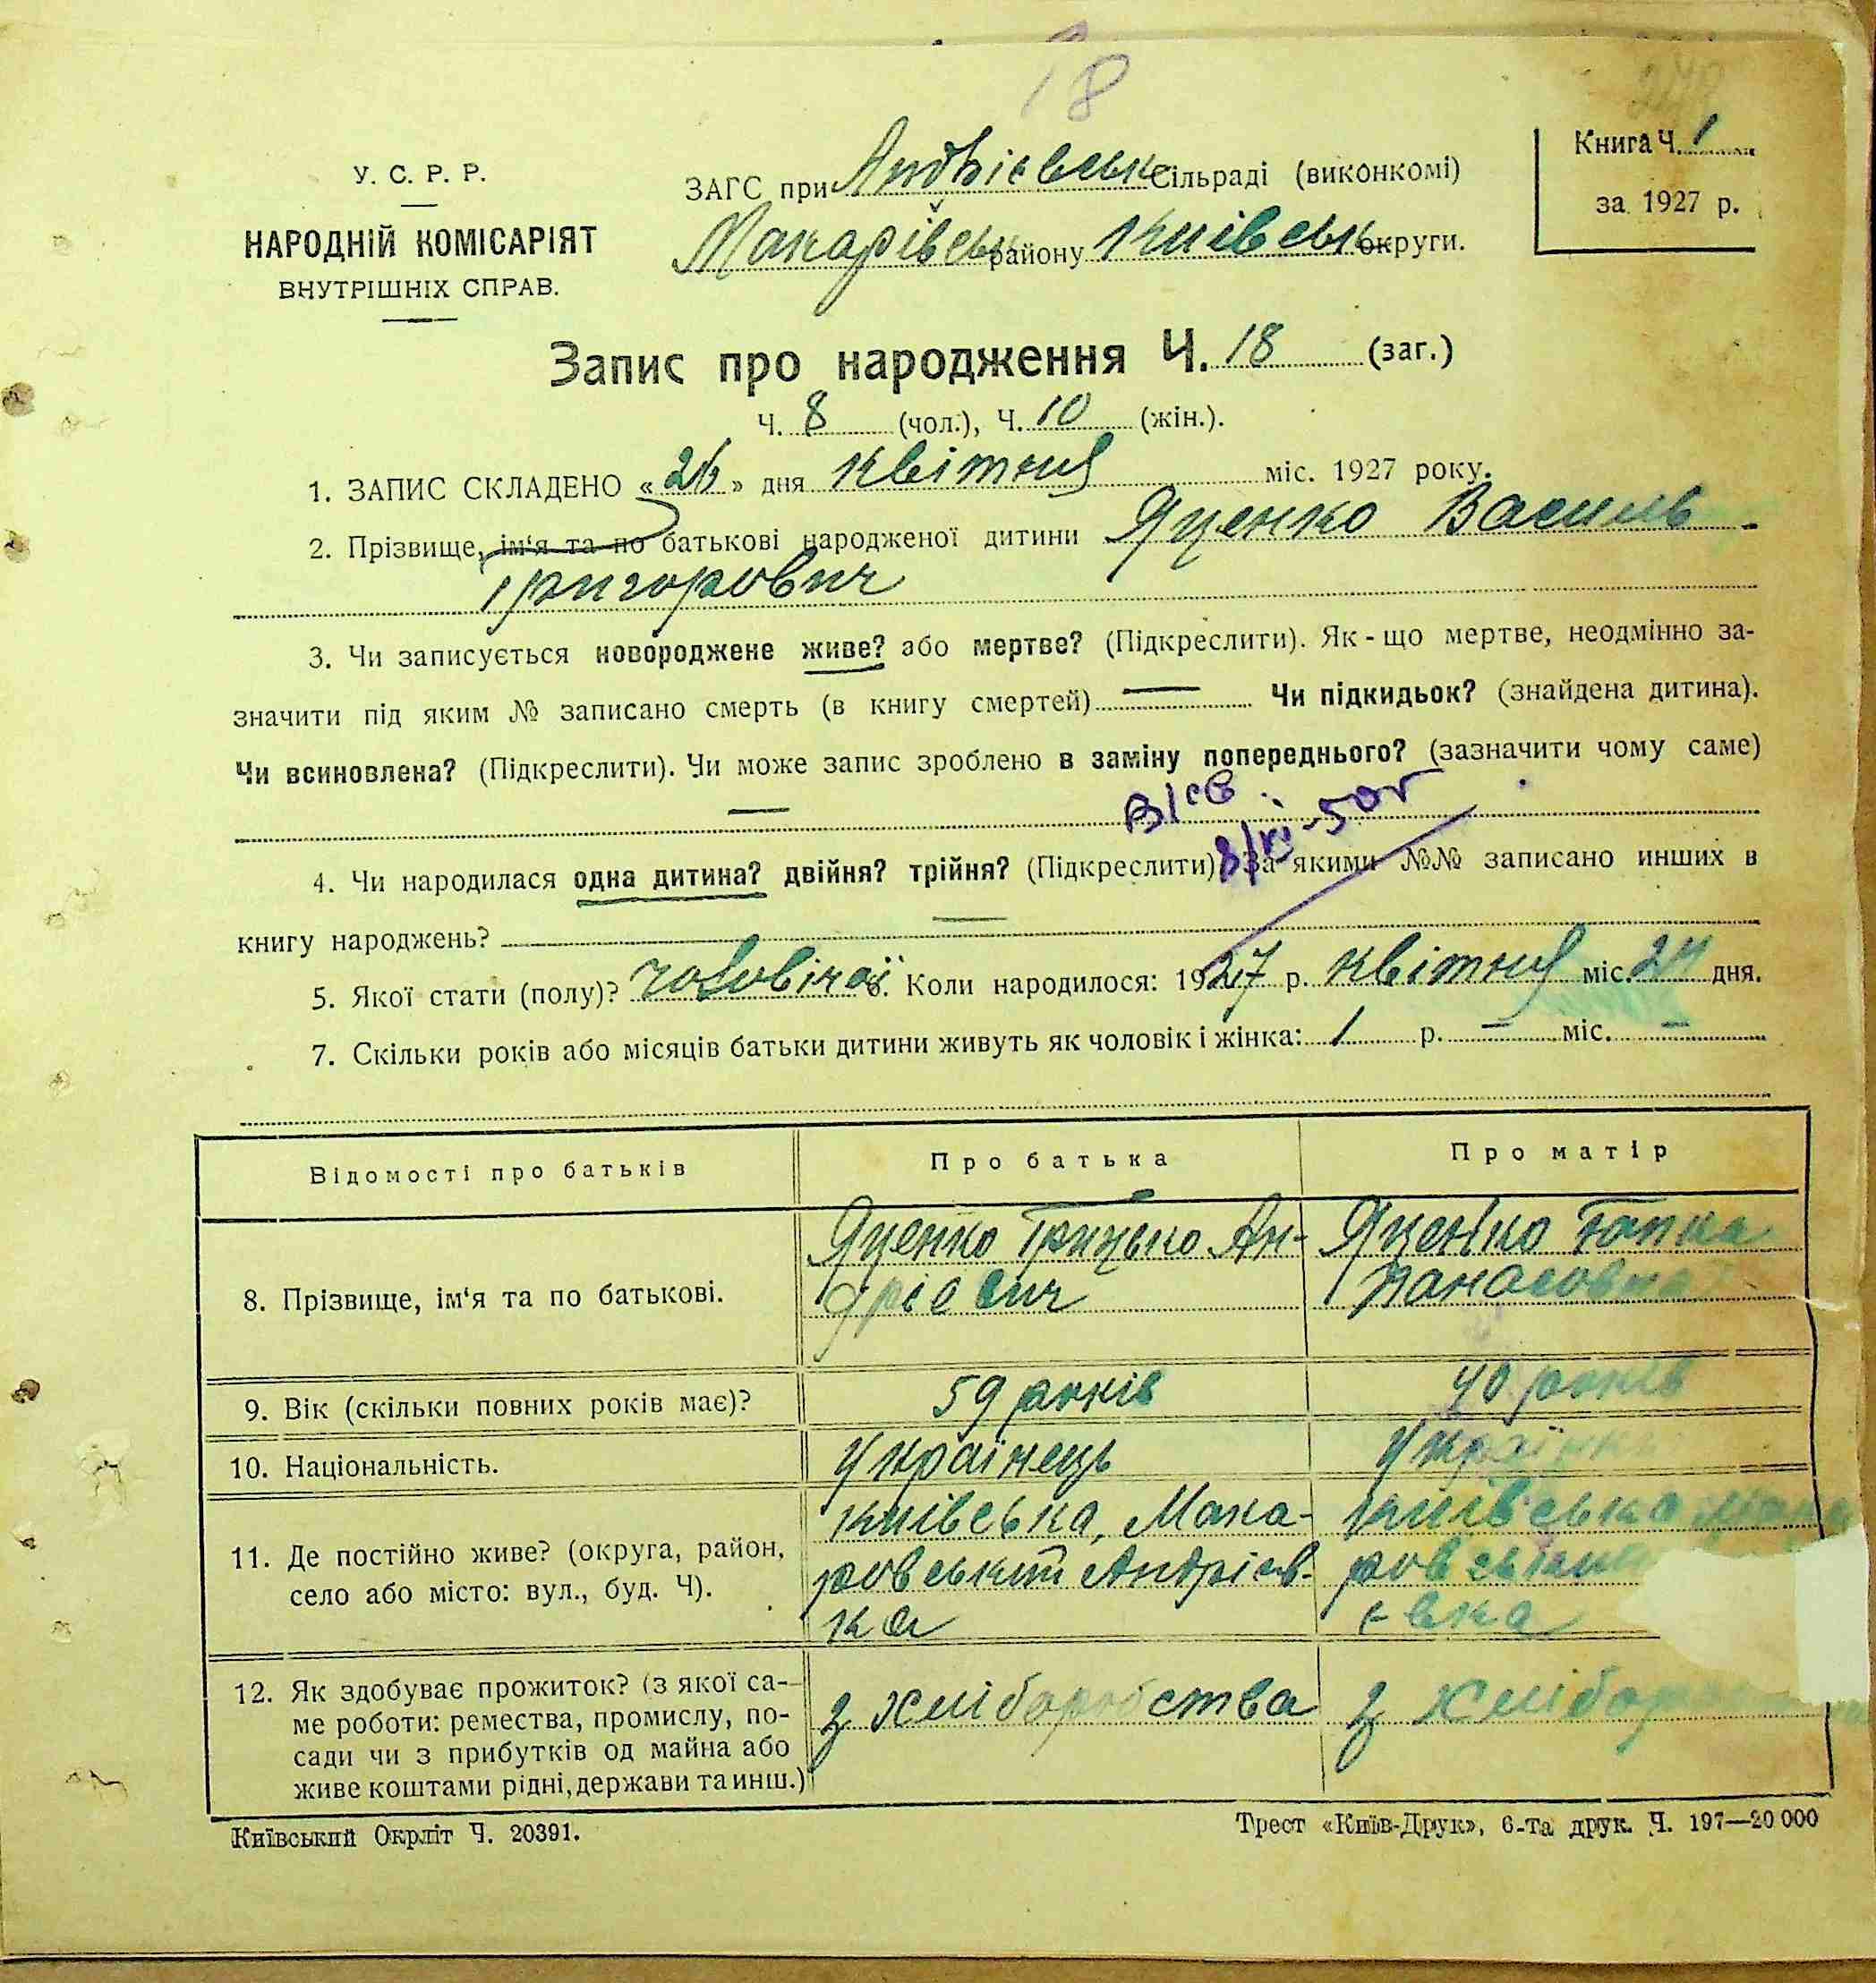 18
У. С. Р. Р.
НАРОДНІЙ КОМІСАРІЯТ
ВНУТРІШНІХ СПРАВ.
ЗАГС при Андрієвськ Сільраді (виконкомі)
Макарівськ району Київськ округи.
Книга Ч. 1
за 1927 р.
Запис про народження Ч. 18 (заг.)
Ч. 8 (чол.), Ч. 10 (жін.).
1. ЗАПИС СКЛАДЕНО «26» дня квітня міс. 1927 року.
2. Прізвище, ім‘я та по батькові народженої дитини Яценко Василь
Григорович
3. Чи записується новороджене живе? або мертве? (Підкреслити). Як-що мертве, неодмінно за-
значити під яким № записано смерть (в книгу смертей) — Чи підкидьок? (знайдена дитина).
Чи всиновлена? (Підкреслити). Чи може запис зроблено в заміну попереднього? (зазначити чому саме)
—
В/св.
8/VI-50г
4. Чи народилася одна дитина? двійня? трійня? (Підкреслити) За якими №№ записано инших в
книгу народжень? —
5. Якої стати (полу)? чоловічої 6. Коли народилося: 1927 р. квітня міс. 24 дня.
7. Скільки років або місяців батьки дитини живуть як чоловік і жінка: 1 р. — міс. —
Відомості про батьків
Про батька
Про матір
8. Прізвище, ім‘я та по батькові.
Яценко Грицько Ан-
дрієвич
Яценко Гапка
Панасовна
9. Вік (скільки повних років має)?
59 років
40 років
10. Національність.
Українець
Українка
11. Де постійно живе? (округа, район,
село або місто: вул., буд. Ч).
Київська, Мака-
ровський Андрієв-
ка
Київська Мака
ровський
євка
12. Як здобуває прожиток? (з якої са-
ме роботи: ремества, промислу, по-
сади чи з прибутків од майна або
живе коштами рідні, держави та инш.)
З хліборобства
З хлібор
Київський Окрліт Ч. 20391.
Трест «Київ-Друк», 6-та друк. Ч. 197—20 000